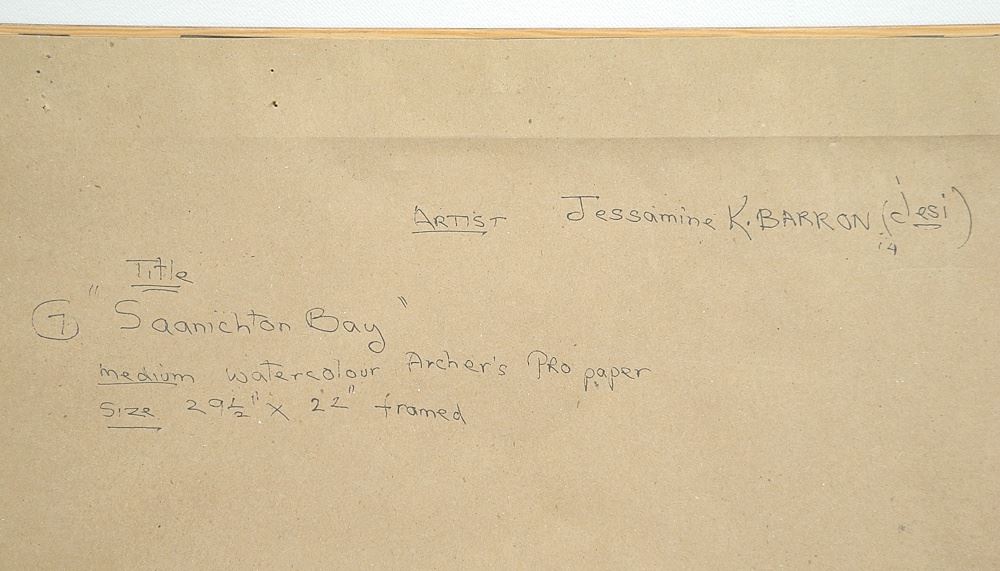 ARTIST Jessamine K. BARRON
Title
7 "Saanichton Bay"
medium watercolour Archer's PRO paper
Size 29½" x 22" framed